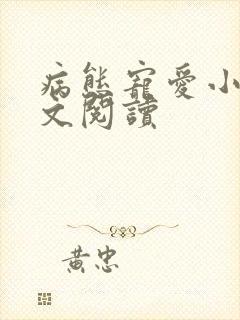 病態寵愛小
文閱讀
黃忠